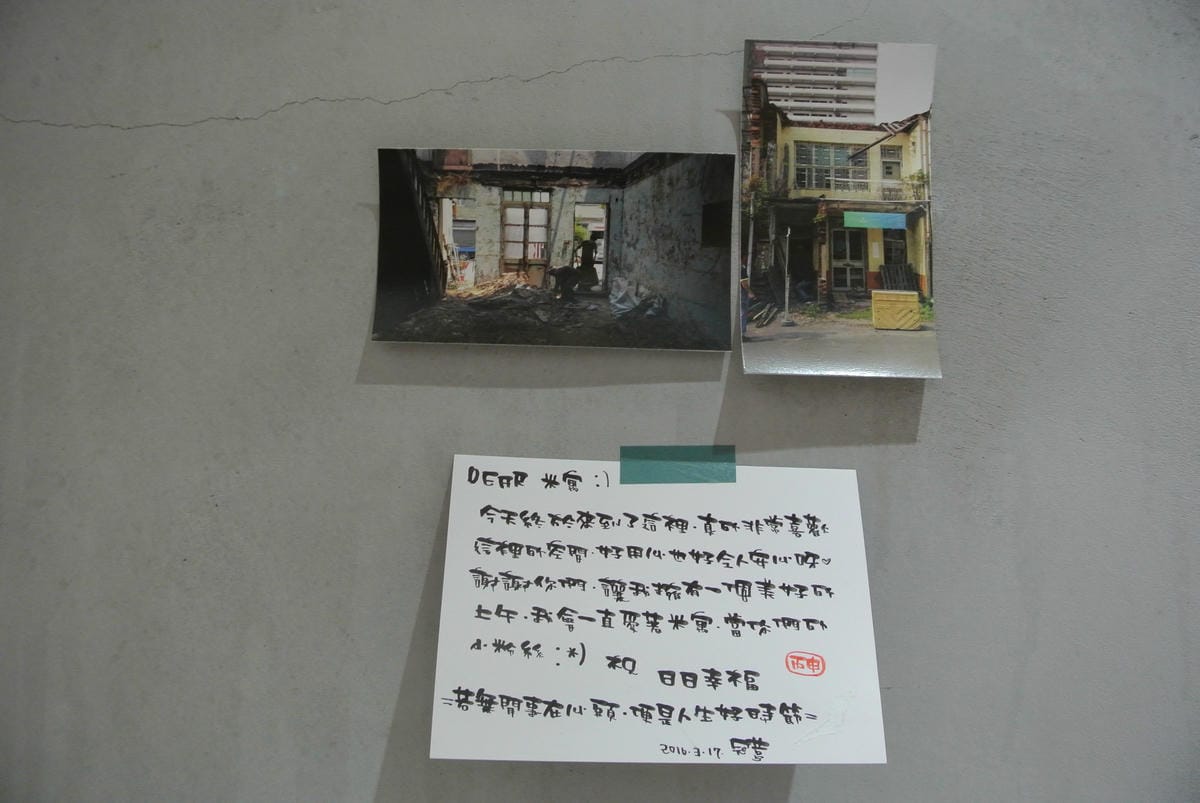 DEAR 米寓 :)
今天終於來到了這裡.真的非常喜歡
這裡的空間.好用心也好令人安心呀♡
謝謝你們.讓我擁有一個美好的
上午.我會一直愛著米寓.當你們的
小粉絲 :*) 祝
日日幸福
丙申
=若無閒事在心頭.便是人生好時節=
2016.3.17.